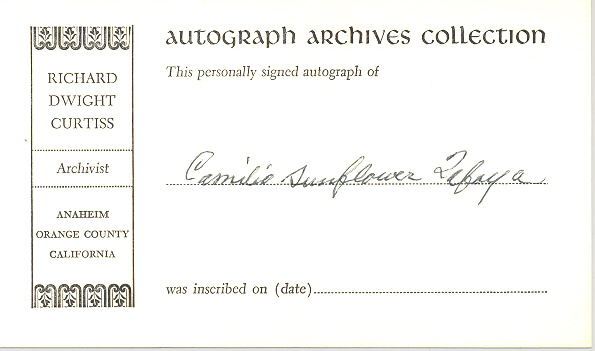 RICHARD
DWIGHT
CURTISS
Archivist
ANAHEIM
ORANGE COUNTY
CALIFORNIA
AUTOGRAPH ARCHIVES COLLECTION
This personally signed autograph of
Camilio Sunflower Tafoya
was inscribed on (date)